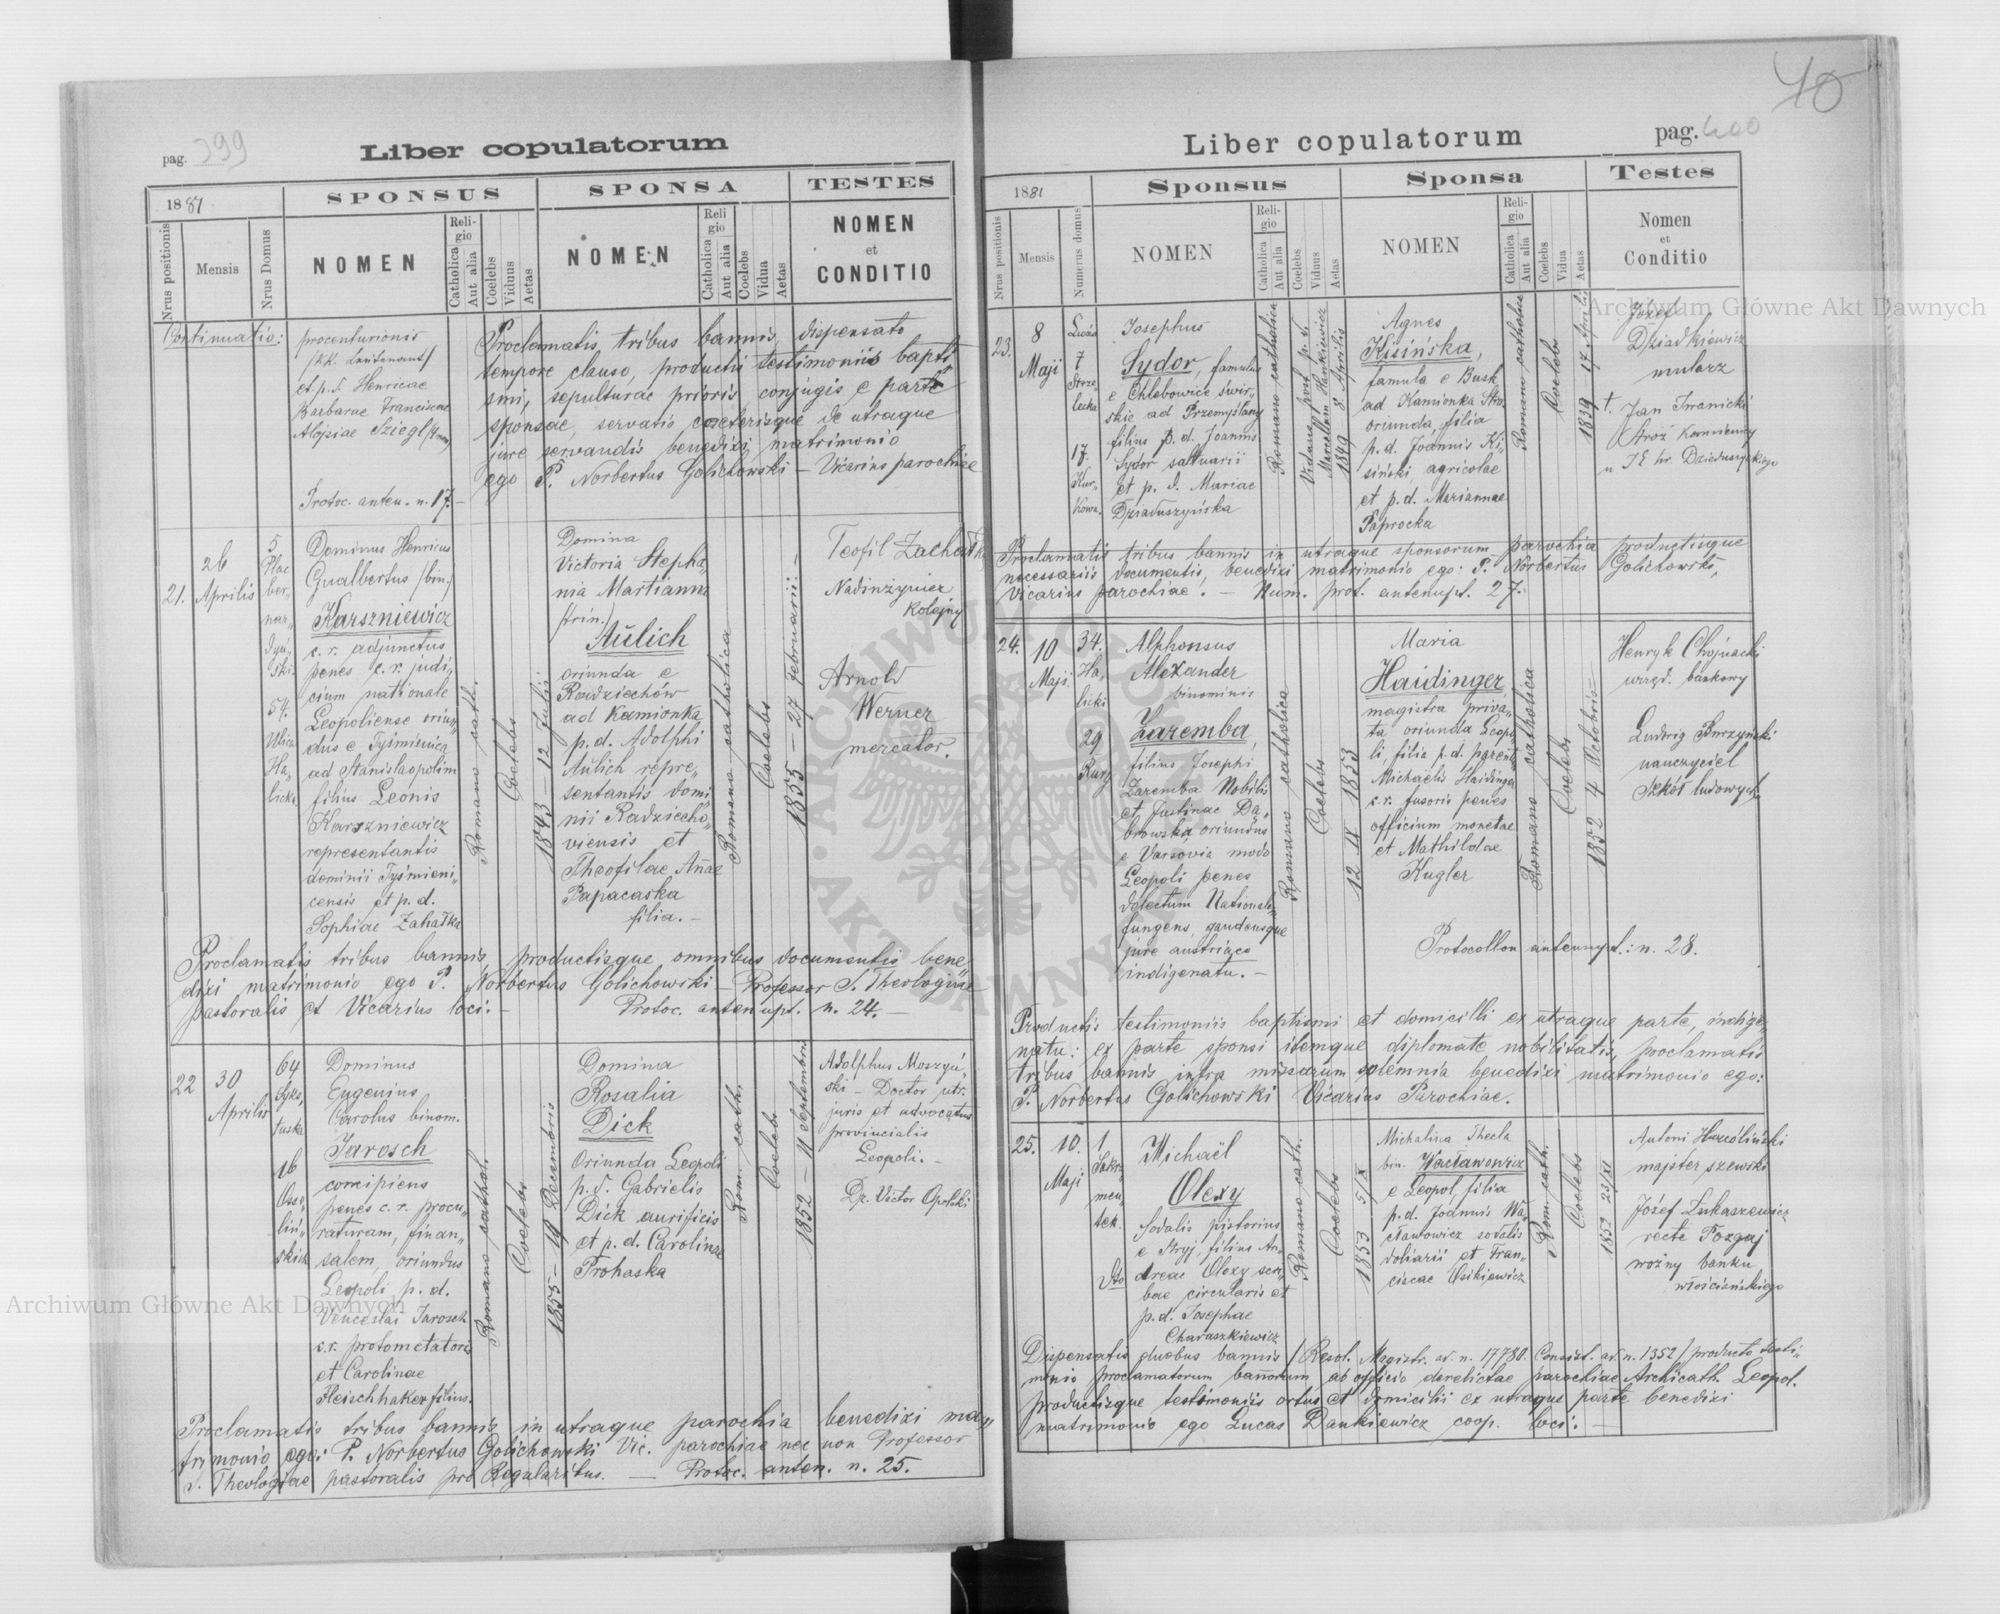 pag. 399
Liber copulatorum
1881
SPONSUS
SPONSA
TESTES
Nrus positionis
Mensis
Nrus Domus
NOMEN
Religio
Catholica
Aut alia
Coelebs
Viduus
Aetas
NOMEN
Religio
Catholica
Aut alia
Coelebs
Vidua
Aetas
NOMEN
et
CONDITIO
Continuatio:
procenturionis
/KK. Leutenant/
et p. d. Henricae
Barbarae Franciscae
Aloysiae Sziegl
Protoc. anten. n. 17. –
Proclamatis tribus bannis, dispensato
tempore clauso, productis testimoniis bapti
smi, sepulturae prioris conjugis e parte
sponsae, servatis caeterisque de utraque
jure servandis benedixi matrimonio
ego P. Norbertus Golichowski – Vicarius parochiae
21.
26
Aprilis
5
Plac
ber-
nar-
dyń-
ski
54.
Ulica
Ha-
licka
Dominus Henricus
Gualbertus /bin./
Karszniewicz
c. r. adjunctus
penes c. r. judi-
cium nationale
Leopoliense oriun-
dus e Tyśmienica
ad Stanislaopolim
filius Leonis
Karszniewicz
representantis
dominii Tyśmieni-
censis et p. d.
Sophiae Zahatka
Romano cath.
Coelebs
1843 – 12 Julii
Domina
Victoria Stepha-
nia Martianna
/trin./
Aulich
oriunda e
Radziechów
ad Kamionka
p. d. Adolphi
Aulich repre-
sentantis domi-
nii Radziecho-
viensis et
Theofilae Annae
Papacaska
filia. –
Romano catholica
Coelebs
1855 – 27 Februarii –
Teofil Zachar
Nadinżynier
Kolejny
Arnold
Werner
mercator.
Proclamatis tribus bannis, productisque omnibus documentis bene-
dixi matrimonio ego P. Norbertus Golichowski – Professor S. Theologiae
pastoralis et Vicarius loci. – Protoc. antenupt. n. 24. –
22
30
Aprilis
64
Syks-
tuska
16
Osso-
liń-
skich
Dominus
Eugenius
Carolus binom.
Jarosch
concipiens
penes c. r. procu-
raturam finan-
salem, oriundus
Leopoli p. d.
Venceslai Jarosch
c. r. protometatoris
et Carolinae
Fleischhaker filius.
Romano cathol.
Coelebs
1855 – 19 Decembris
Domina
Rosalia
Dick
Oriunda Leopoli
p. d. Gabrielis
Dick aurificis
et p. d. Carolinae
Prohaska
Rom. cath.
Coelebs
1852 – 11 Septembris
Adolphus Moszyń-
ski – Doctor utr.
juris et advocatus
provincialis
Leopoli. –
Dr. Victor Opolski
Proclamatis tribus bannis in utraque parochia benedixi ma-
trimonio ego: P. Norbertus Golichowski Vic. parochiae nec non Professor
S. Theologiae pastoralis pro Regularibus. – Protoc. anten. n. 25.
40
pag. 400
Liber copulatorum
1881
Sponsus
Sponsa
Testes
Nrus positionis
Mensis
Numerus domus
NOMEN
Religio
Catholica
Aut alia
Coelebs
Viduus
Aetas
NOMEN
Religio
Catholica
Aut alia
Coelebs
Vidua
Aetas
Nomen
et
Conditio
23.
8
Maji
7
Strze
lecka
17.
Kur-
kowa.
Josephus
Sydor, famulus
e Chlebowice świr-
skie ad Przemyślany
filius p. d. Joannis
Sydor saltuarii
et p. d. Mariae
Dziaduszyńska
Romano catholica
Viduus post p. d.
Marcellam Hankiewicz
1849 8 Aprilis
Agnes
Kisińska,
famula e Busk
ad Kamionka Stro.
oriunda, filia
p. d. Joannis Ki-
siński agricolae
et p. d. Mariannae
Paprocka
Romano catholica
Coelebs
1839 17 Aprilis
Józef
Dziadkiewicz
mularz
†. Jan Iwanicki
Stróż kamienicy
u JE hr. Dzieduszyckiego
Proclamatis tribus bannis in utraque sponsorum parochia productisque
necessariis documentis, benedixi matrimonio ego: P. Norbertus Golichowski,
vicarius parochiae. – Num. prot. antenupt. 27.
24.
10
Maji
34.
Ha-
licki
29
Kurz
Alphonsus
Alexander
binominis
Zaremba,
filius Josephi
Zaremba Nobilis
et Justinae Dą-
browska oriundus
e Varsovia modo
Leopoli penes
dolectum Nationale
fungens, gaudensque
jure austriaco
indigenatu. –
Romano catholica
Coelebs
12 IX 1853
Maria
Haidinger
magistra priva-
ta oriunda Leopo-
li filia p. d. parent.
Michaelis Haidinger
c. r. fusoris penes
officium monetae
et Mathildae
Kugler
Romano catholica
Coelebs
1852 4 Octobris –
Henryk Chojnacki
urzęd. bankowy
Ludwig Burzyński
nauczyciel
Szkół ludowych
Protocollon antenupt.: n. 28.
Productis testimoniis baptismi et domicilii ex utraque parte, indige-
natu: ex parte sponsi itemque diplomate nobilitatis, proclamatis
tribus bannis intra missarum solemnia benedixi matrimonio ego:
P. Norbertus Golichowski Vicarius Parochiae.
25.
10.
Maji
1
Sakra
men-
tek.
dto
Michaël
Olexy
Sodalis pistorius
e Stryj, filius An-
dreae Olexy scri-
bae circularis et
p. d. Josephae
Charaszkiewicz
Romano cath.
Coelebs
1853 5/X
Michalina Thecla
bin. Wacławowicz
e Leopol, filia
p. d. Joannis Wa-
cławowicz sodalis
doliarii et Fran-
ciscae Osikiewicz
Rom. cath.
Coelebs
1852 23/XI
Antoni Harcoliński
majster szewski
Józef Łukaszewicz
recte Pozgaj
woźny banku
włościańskiego
Dispensatis duobus bannis /Resol. Magistr. ad. n. 17780. Consist. ad. n. 1352/ producto testi-
monio proclamatorum bannorum ab officio derelictae parochiae Archicath. Leopol.
productisque testimoniis ortus et domicilii ex utraque parte benedixi
matrimonio ego Lucas Dankiewicz coop. loci: –
Archiwum Główne Akt Dawnych
Archiwum Główne Akt Dawnych
ARCHIWUM GŁÓWNE AKT DAWNYCH